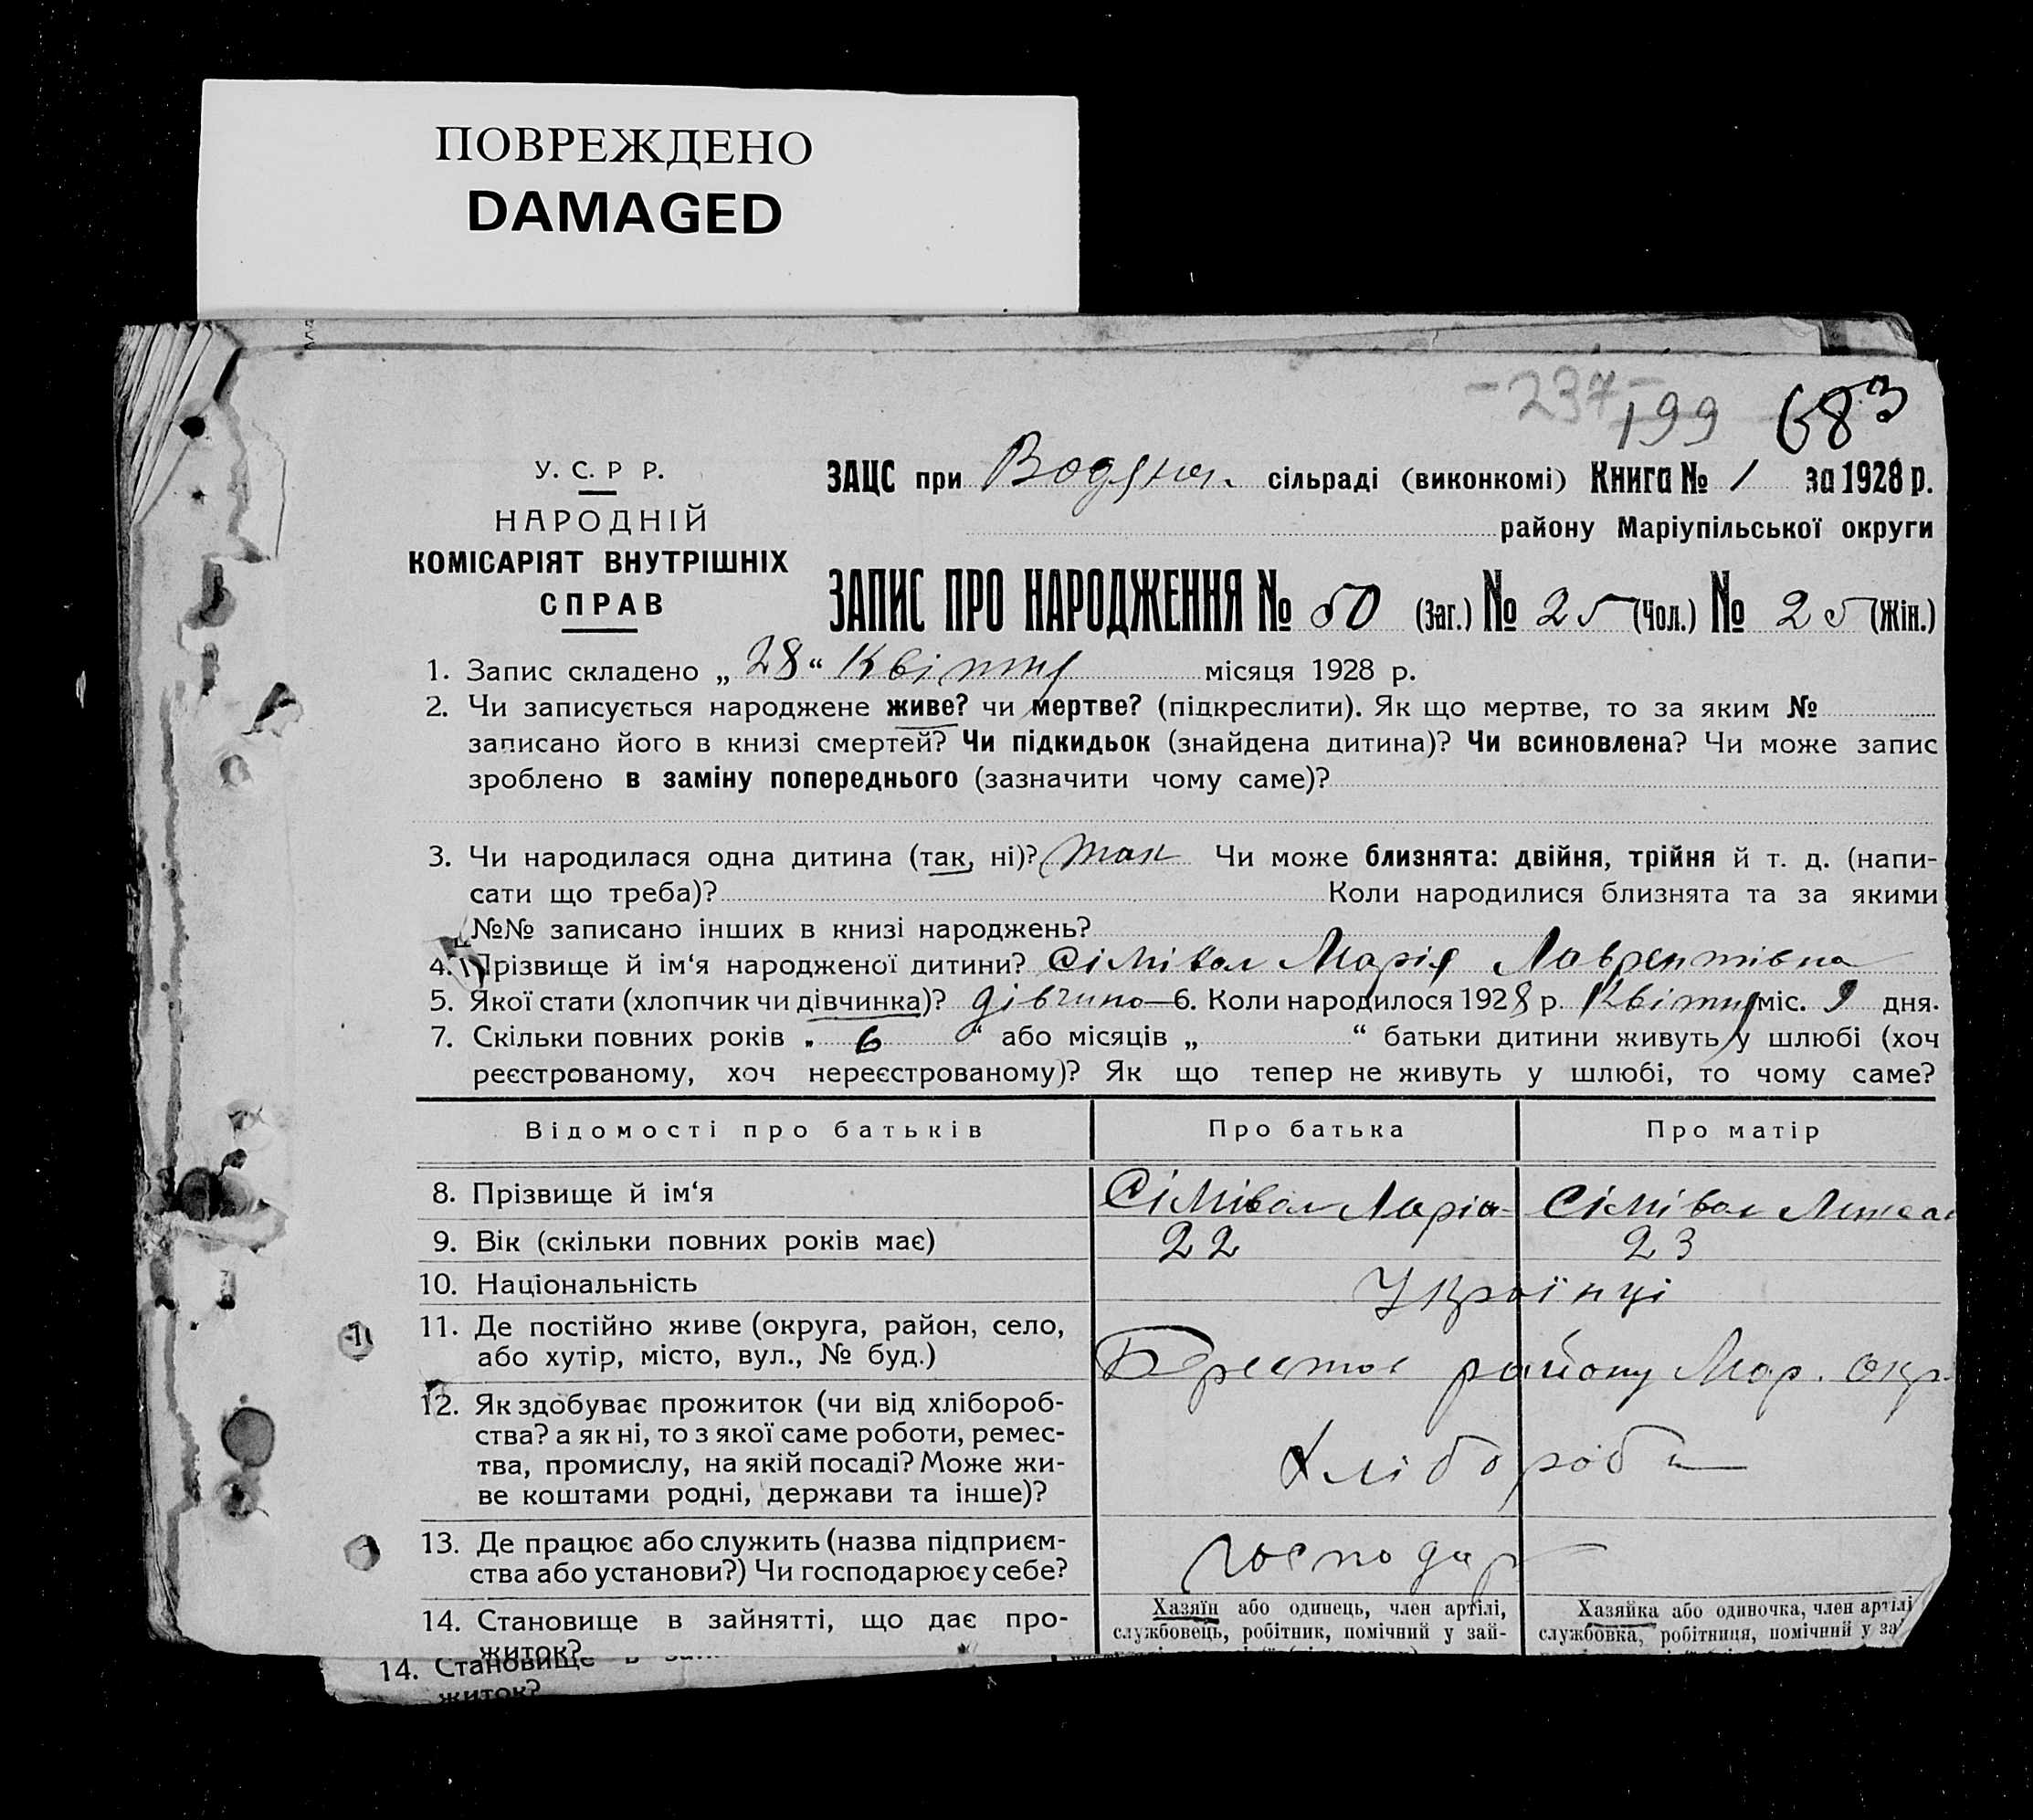 ПОВРЕЖДЕНО
DAMAGED
-237-
199 683
У. С. Р Р.
НАРОДНІЙ
КОМІСАРІЯТ ВНУТРІШНІХ
СПРАВ
ЗАЦС при Водян. сільраді (виконкомі) Книга № 1 за 1928 р.
району Маріупільської округи
ЗАПИС ПРО НАРОДЖЕННЯ № 50 (Заг.) № 25 (Чол.) № 25 (Жін.)
1. Запис складено „ 28 “ Квітня місяця 1928 р.
2. Чи записується народжене живе? чи мертве? (підкреслити). Як що мертве, то за яким №
записано його в книзі смертей? Чи підкидьок (знайдена дитина)? Чи всиновлена? Чи може запис
зроблено в заміну попереднього (зазначити чому саме)?
3. Чи народилася одна дитина (так, ні)? так Чи може близнята: двійня, трійня й т. д. (напи-
сати що треба)? Коли народилися близнята та за якими
№№ записано інших в книзі народжень?
4. Прізвище й ім‘я народженої дитини? Сімівол Марія Лаврентівна
5. Якої стати (хлопчик чи дівчинка)? дівчина 6. Коли народилося 1928 р. Квітня міс. 9 дня.
7. Скільки повних років „ 6 “ або місяців „ “ батьки дитини живуть у шлюбі (хоч
реєстрованому, хоч нереєстрованому)? Як що тепер не живуть у шлюбі, то чому саме?
Відомості про батьків Про батька Про матір
8. Прізвище й ім‘я Сімівол Сімівол
9. Вік (скільки повних років має) 22 23
10. Національність Українці
11. Де постійно живе (округа, район, село,
або хутір, місто, вул., № буд.) району Мар. окр.
12. Як здобуває прожиток (чи від хлібороб-
ства? а як ні, то з якої саме роботи, ремес-
тва, промислу, на якій посаді? Може жи-
ве коштами родні, держави та інше)? Хлібороби
13. Де працює або служить (назва підприєм-
ства або установи?) Чи господарює у себе? господар
14. Становище в зайнятті, що дає про-
житок?
Хазяїн або одинець, член артілі,
службовець, робітник, помічний у зай-
Хазяйка або одиночка, член артілі
службовка, робітниця, помічний у за
14. Становище в
житок?